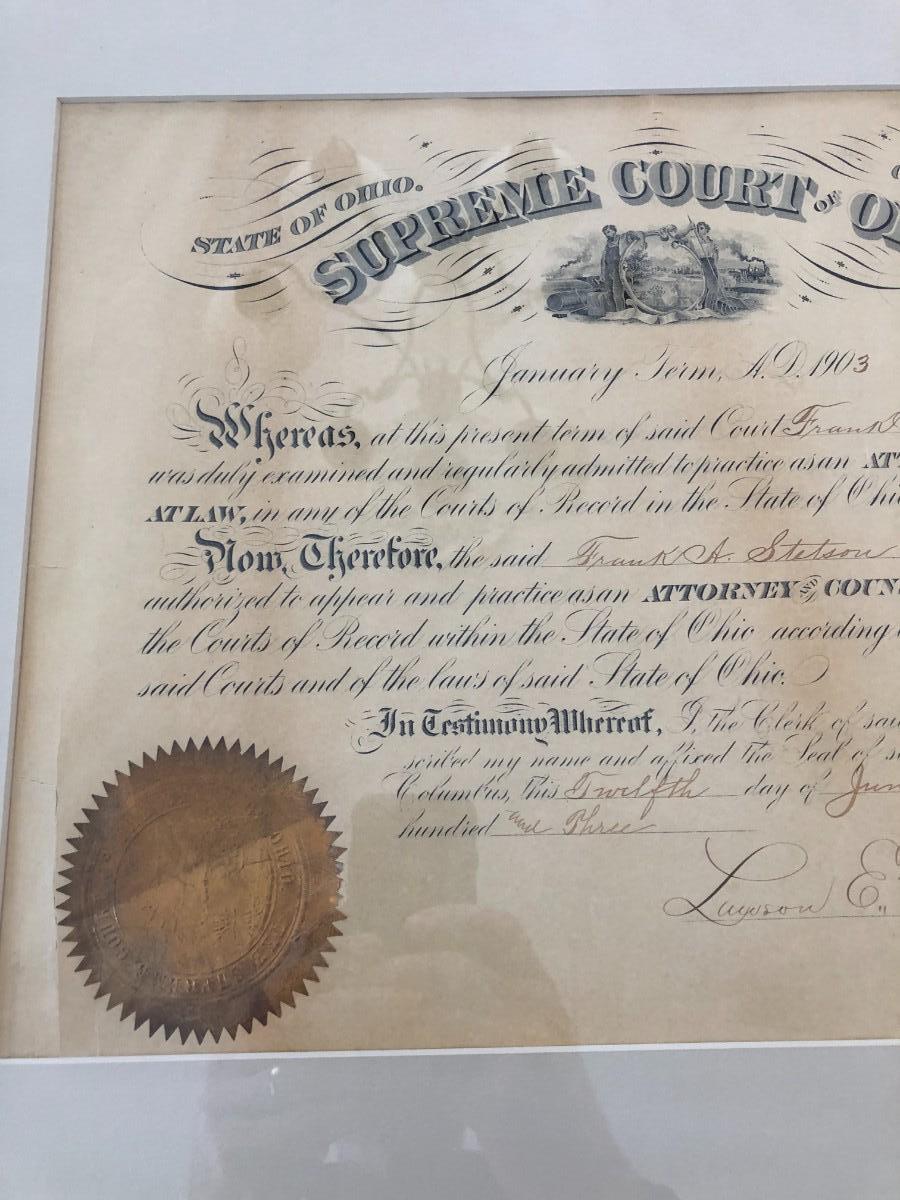 STATE OF OHIO.
SUPREME COURT OF
January Term, A.D. 1903
Whereas, at this present term of said Court Frank
was duly examined and regularly admitted to practice as an
AT LAW, in any of the Courts of Record in the State of
Now, Therefore, the said Frank A. Stetson
authorized to appear and practice as an ATTORNEY AND
the Courts of Record within the State of Ohio according
said Courts and of the laws of said State of Ohio.
In Testimony Whereof, I, the Clerk of
scribed my name and affixed the Seal of
Columbus, this Twelfth day of
hundred and Three
E.